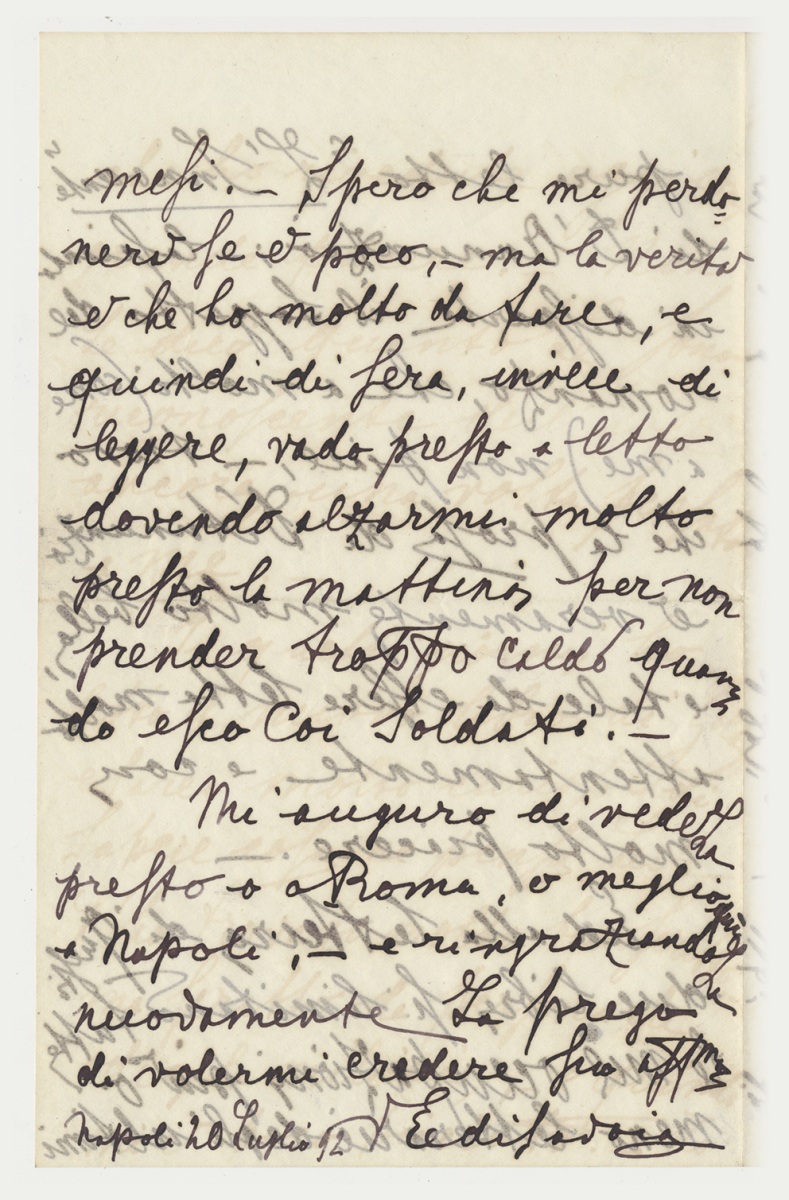 mesi. – Spero che mi perdo=
nerà se è poco, – ma la verità
è che ho molto da fare, e
quindi di sera, invece di
leggere, vado presto a letto
dovendo alzarmi molto
presto la mattina, per non
prender troppo caldo quan=
do esco coi Soldati. –
Mi auguro di veder
La
presto o a Roma, o meglio
quì
a Napoli, – e ringraziando
La
nuovamente La prego
di volermi credere suo affmo
Napoli 20 Luglio 92 VEdiSavoia